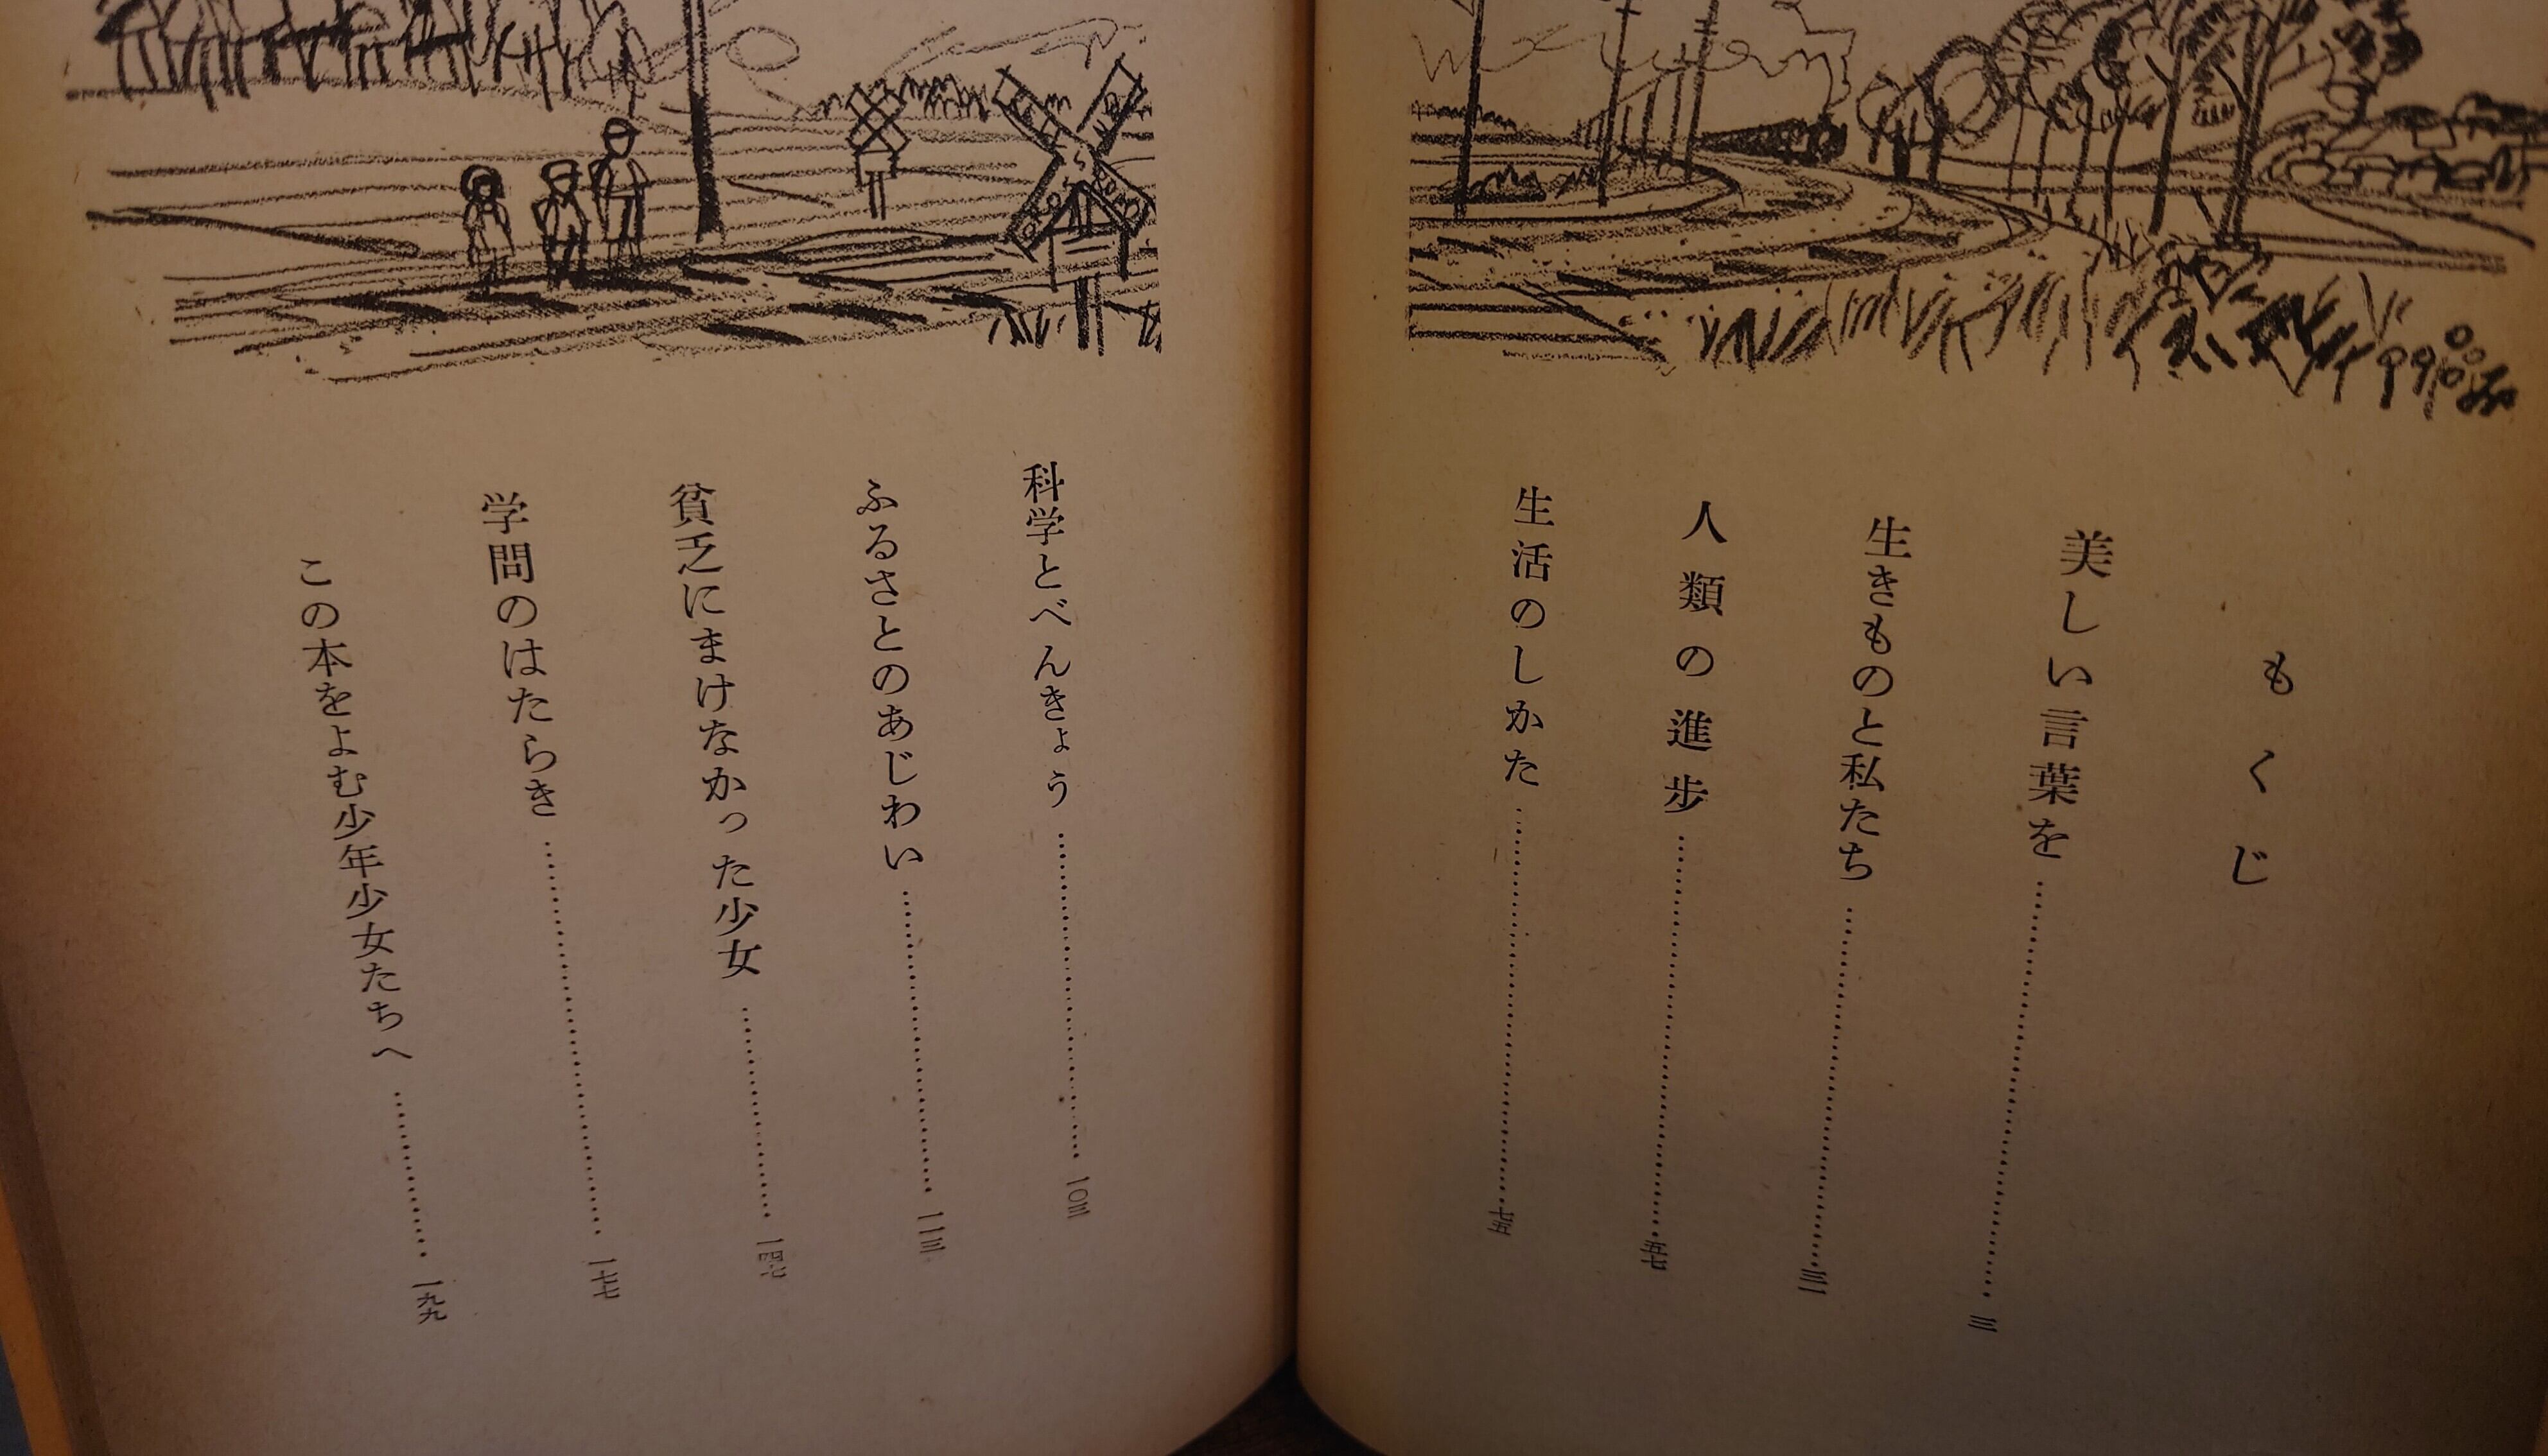 もくじ
美しい言葉を……三
生きものと私たち……三一
人類の進歩……五七
生活のしかた……
科学とべんきょう……一〇三
ふるさとのあじわい……一一三
貧乏にまけなかった少女……一四七
学問のはたらき……一七七
この本をよむ少年少女たちへ……一九九